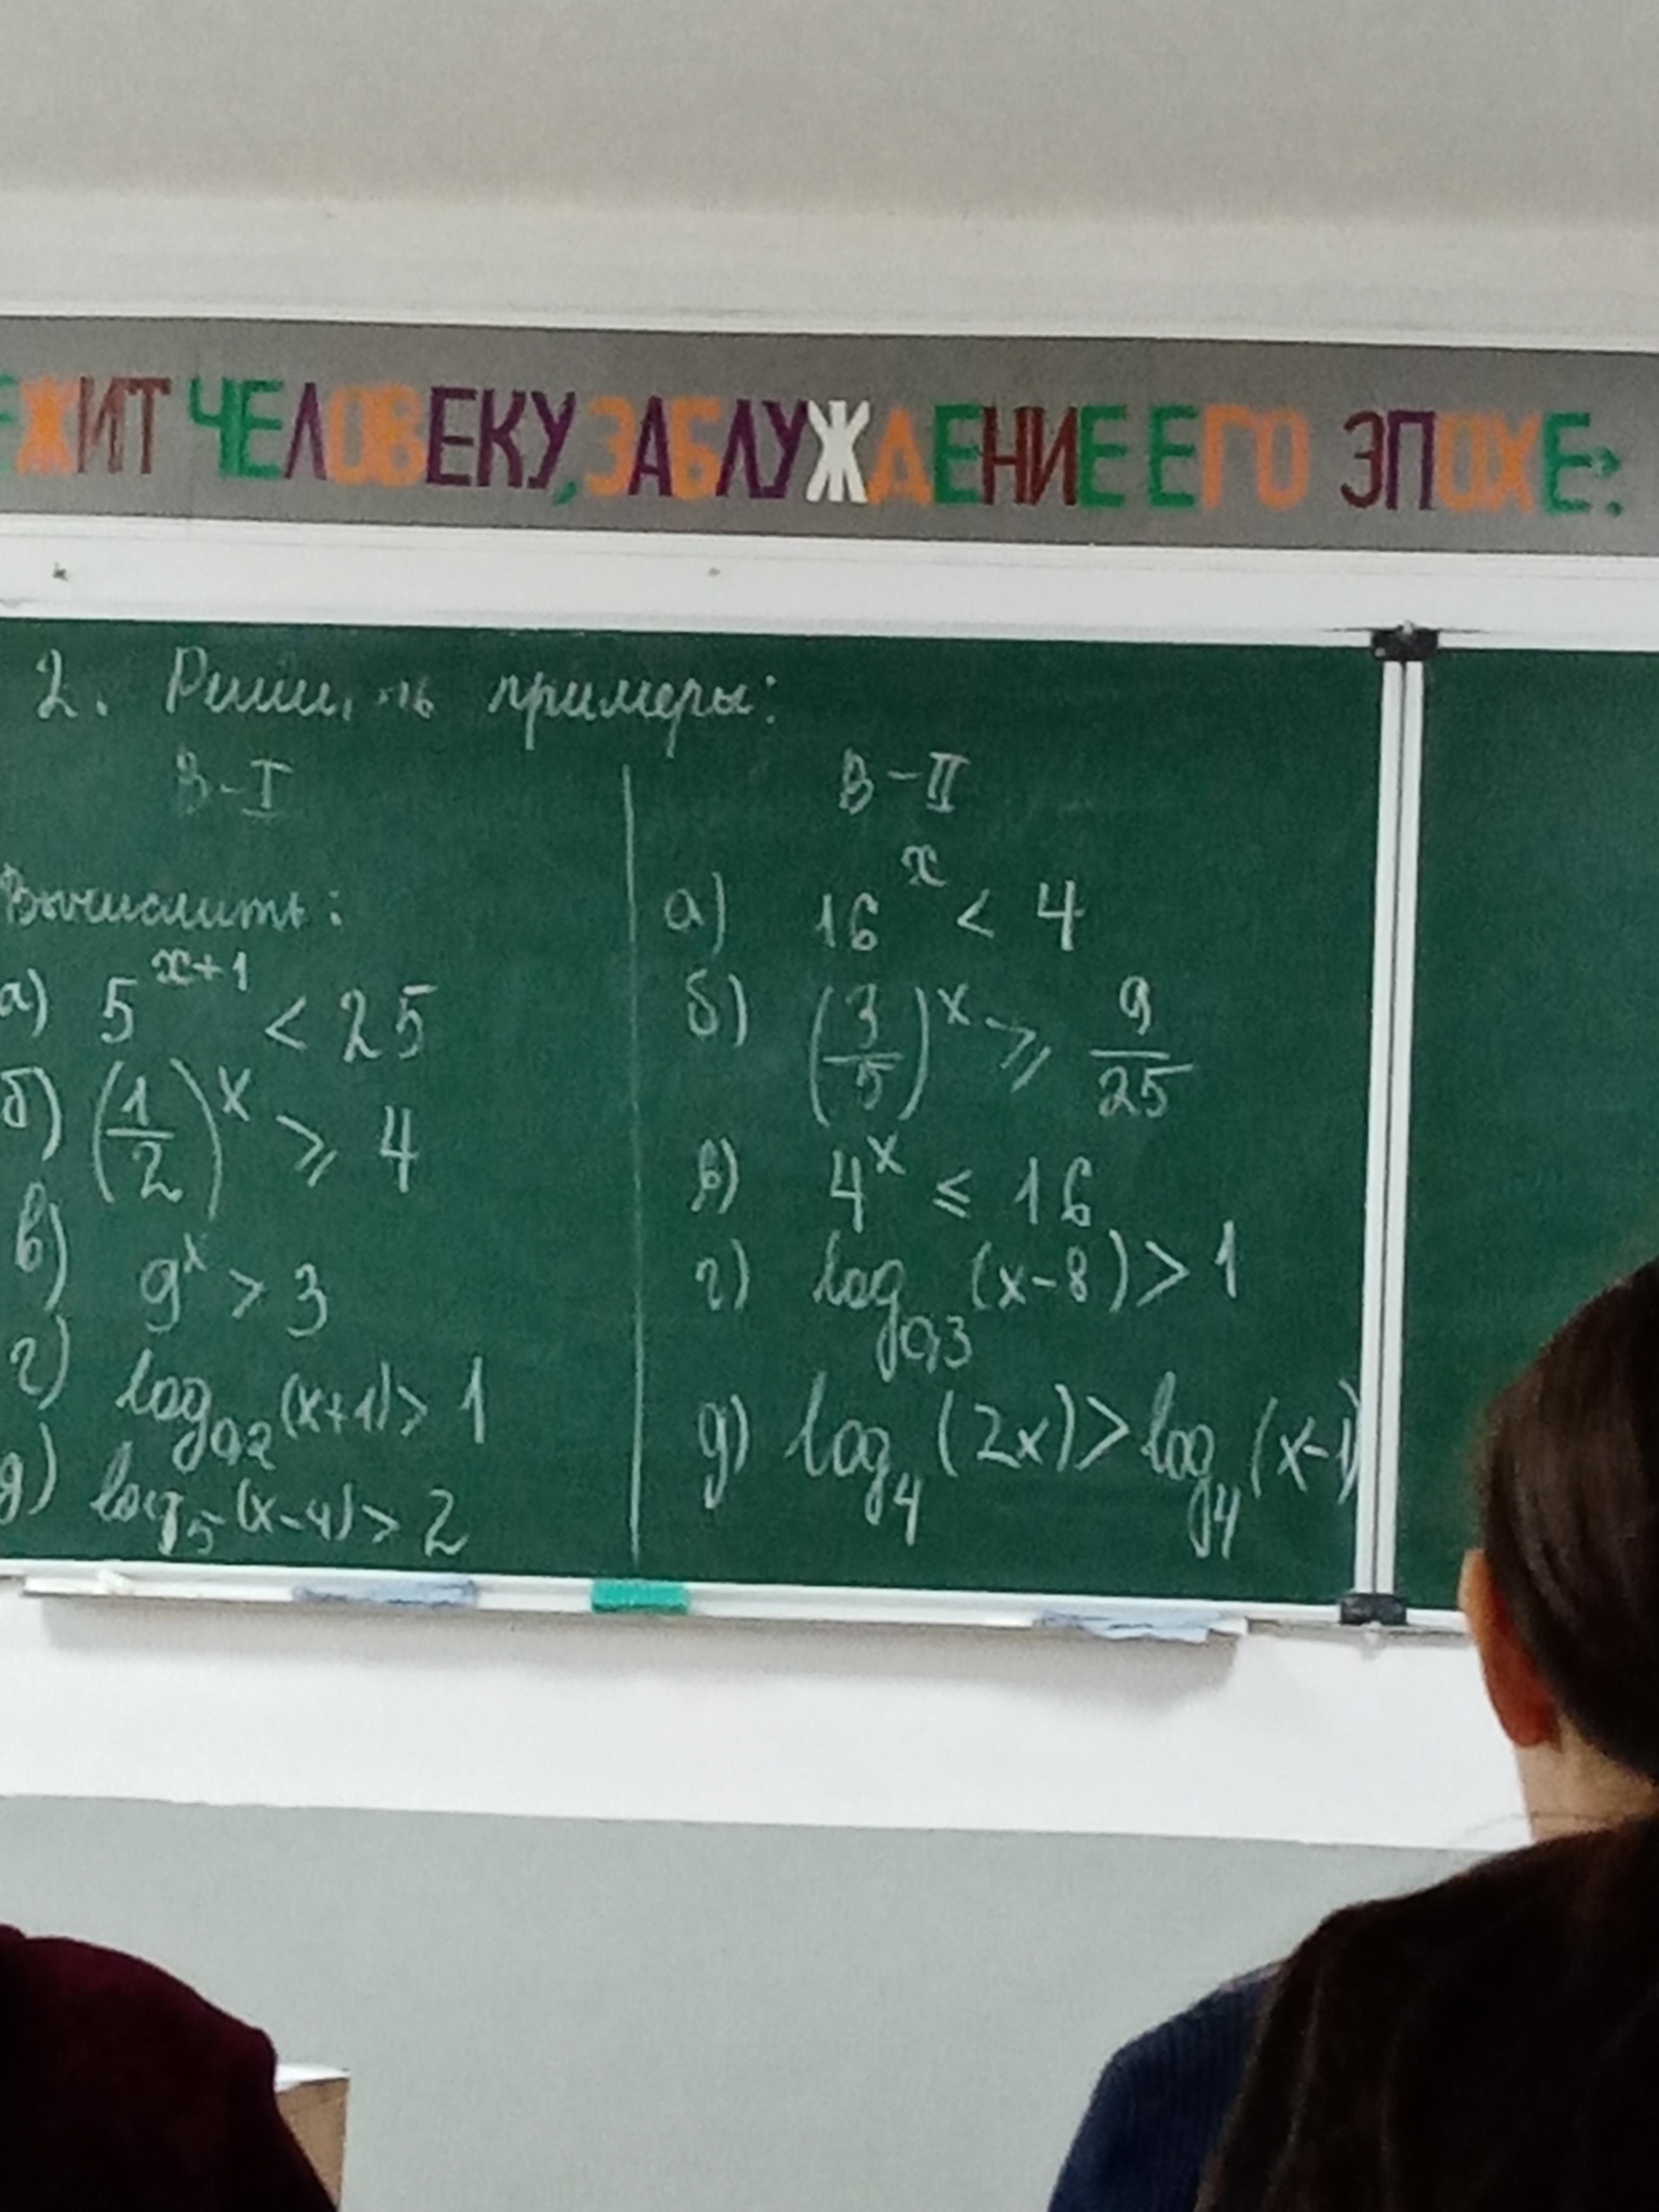 ЕЖИТ ЧЕЛОВЕКУ, ЗАБЛУЖДЕНИЕ ЕГО ЭПОХЕ?
2. примеры:
В-I
Вычислить:
а) 5^{x+1} < 25
б) (1/2)^x ⩾ 4
в) 9^x > 3
г) log_{0,2}(x+1) > 1
д) log_5(x-4) > 2
В-II
а) 16^x < 4
б) (3/5)^x ⩾ 9/25
в) 4^x ≤ 16
г) log_{0,3}(x-8) > 1
д) log_4(2x) > log_4(x-1)